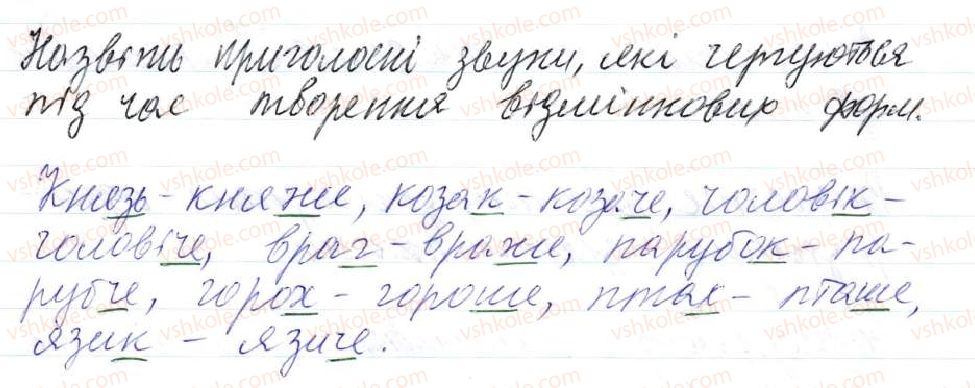 Назвіть приголосні звуки, які чергуються
під час творення відмінкових форм.
Князь - княже, козак - козаче, чоловік -
чоловіче, враг - враже, парубок - па-
рубче, горох - гороше, птах - пташе,
язик - язиче.